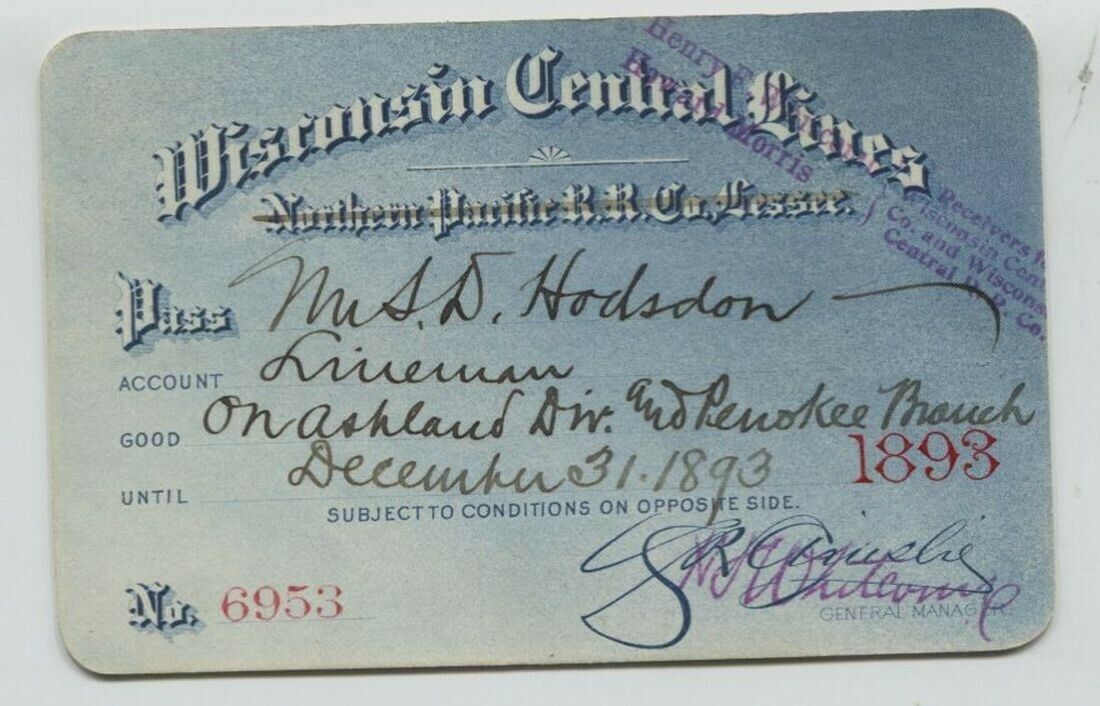 Wisconsin Central Lines
Northern Pacific R.R. Co., Lessee.
Henry F.
Howard Morris
Receivers
Wisconsin Cent
Co. and Wiscons
Central R.R. Co.
Pass Mr S. D. Hodsdon
ACCOUNT Lineman
GOOD On Ashland Div. and Penokee Branch
UNTIL December 31. 1893
1893
SUBJECT TO CONDITIONS ON OPPOSITE SIDE.
No. 6953
GENERAL MANAGER.